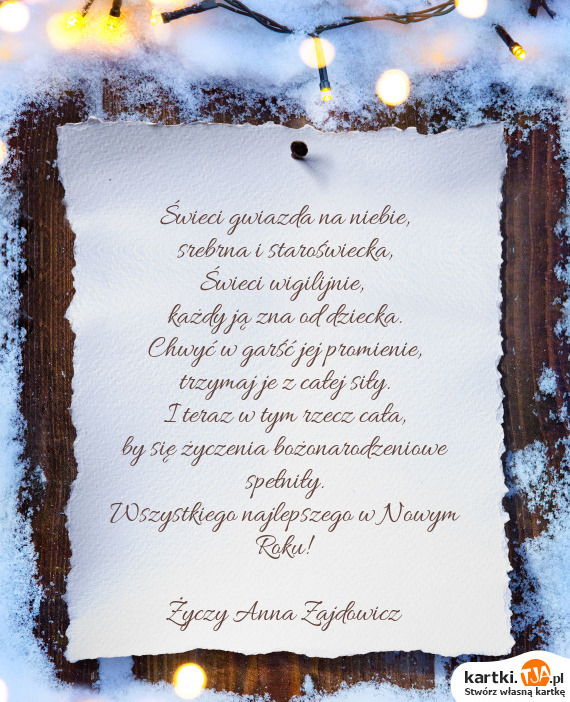 Świeci gwiazda na niebie,
srebrna i staroświecka,
Świeci wigilijnie,
każdy ją zna od dziecka.
Chwyć w garść jej promienie,
trzymaj je z całej siły.
I teraz w tym rzecz cała,
by się życzenia bożonarodzeniowe
spełniły.
Wszystkiego najlepszego w Nowym
Roku!
Życzy Anna Zajdowicz
kartki.TJA.pl
Stwórz własną kartkę